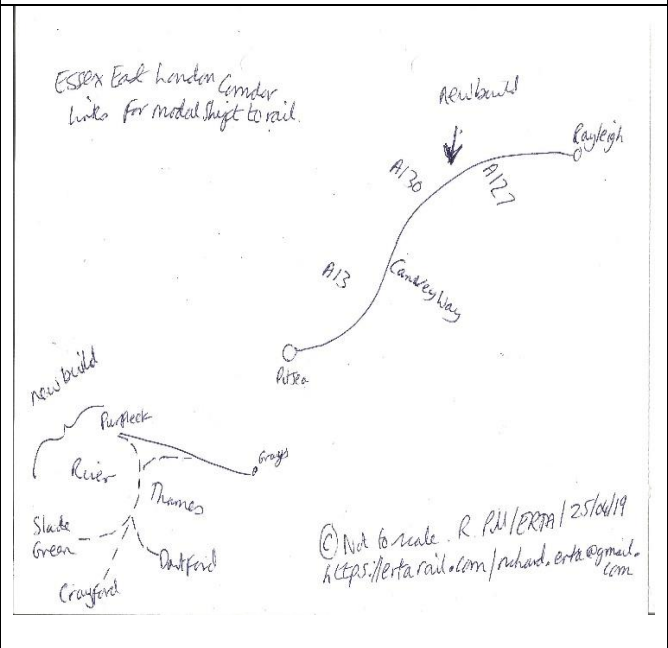 Essex East London Corridor
Links for modal shift to rail.
newbuild
Rayleigh
A130
A127
A13
Canvey Way
Pitsea
newbuild
Purfleet
Grays
River
Thames
Slade
Green
Dartford
Crayford
© Not to scale. R. PM/ERTA/25/04/19
https://ertarail.com/richard.erta@gmail.
com